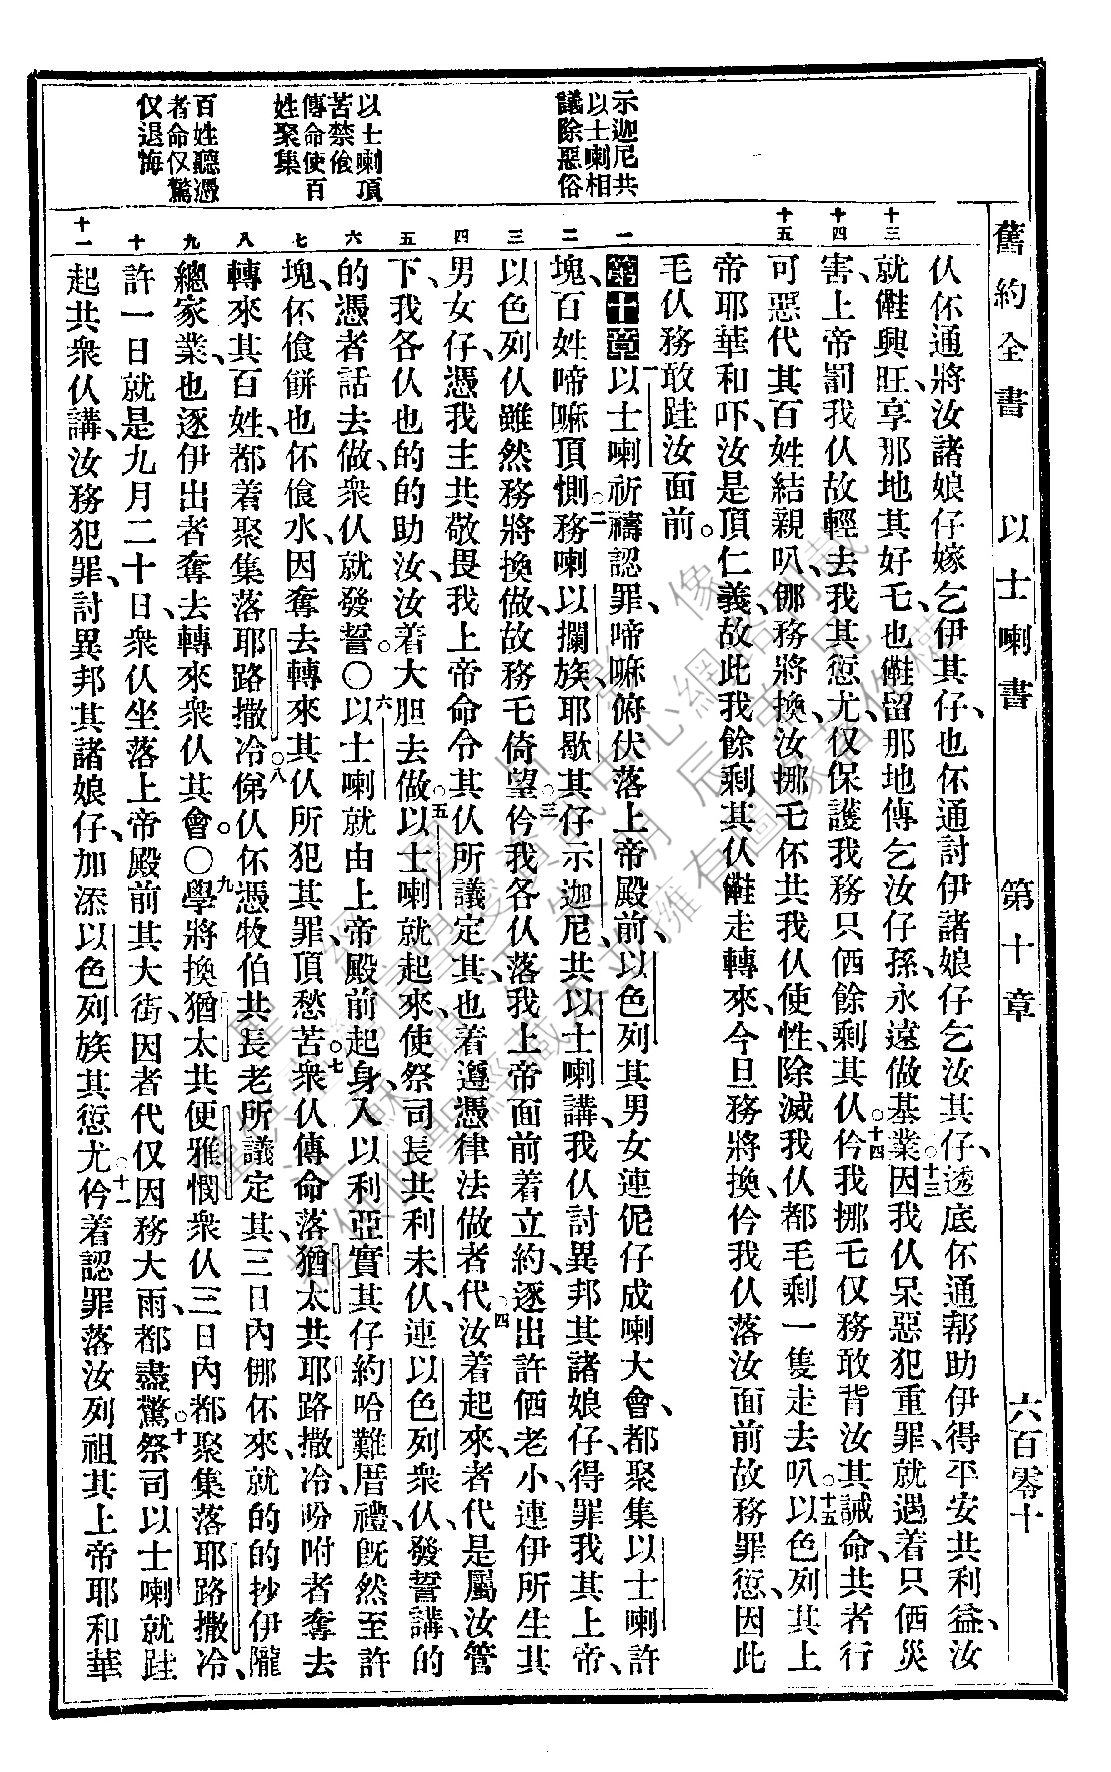 舊約全書 以士喇書 第十章 六百零十
示迦尼共
以士喇相
議除惡俗
以士喇頂
苦禁飧
傳命使百
姓聚集
百姓聽憑
者命仅驚
仅退悔
十三 十四 十五 一 二 三 四 五 六 七 八 九 十 十一
仈伓通將汝諸娘仔嫁乞伊其仔、也伓通討伊諸娘仔乞汝其仔、透底伓通幫助伊得平安共利益、汝
就㒕興旺、享那地其好乇、也㒕留那地傳乞汝仔孫、永遠做基業○十三因我仈呆惡犯重罪、就遇着只僫災
害、上帝罰我仈故輕去我其愆尤、仅保護我務只僫餘剩其仈○十四仱我挪乇仅務敢背汝其誡命、共者行
可惡代其百姓結親叭、㑚務將換、汝挪乇伓共我仈使性、除滅我仈都毛剩一隻走去叭○十五以色列其上
帝耶華和吓、汝是頂仁義、故此我餘剩其仈㒕走轉來、今旦務將換、仱我仈落汝面前故務罪愆、因此
毛仈務敢跬汝面前。
第十章 一以士喇祈禱認罪、啼嘛俯伏落上帝殿前、以色列其男女連伲仔成喇大會、都聚集以士喇許
塊、百姓啼嘛頂惻○二務喇以攔族、耶歇其仔示迦尼、共以士喇講、我仈討異邦其諸娘仔、得罪我其上帝、
以色列仈雖然務將換做、故務乇倚望○三仱我各仈落我上帝面前着立約、逐出許僫老小、連伊所生其
男女仔、憑我主共敬畏我上帝命令其仈所議定其、也着遵憑律法做者代○四汝着起來、者代是屬汝管
下、我各仈也的的助汝、汝着大胆去做○五以士喇就起來、使祭司長共利未仈、連以色列衆仈、發誓講、的
的憑者話去做、衆仈就發誓。○六以士喇就由上帝殿前起身、入以利亞實其仔約哈難厝禮、旣然至許
塊、伓飧餅也伓飧水、因奪去轉來其仈所犯其罪、頂愁苦○七衆仈傳命落猶太共耶路撒冷、吩咐者奪去
轉來其百姓、都着聚集落耶路撒冷○八俤仈伓憑牧伯共長老所議定其、三日內㑚伓來、就的的抄伊隴
總家業、也逐伊出者奪去轉來衆仈其會。○九學將換猶太共便雅憫衆仈、三日內都聚集落耶路撒冷、
許一日就是九月二十日、衆仈坐落上帝殿前其大街、因者代仅因務大雨、都盡驚○十祭司以士喇就跬
起共衆仈講、汝務犯罪、討異邦其諸娘仔、加添以色列族其愆尤○十一仱着認罪落汝列祖其上帝耶和華